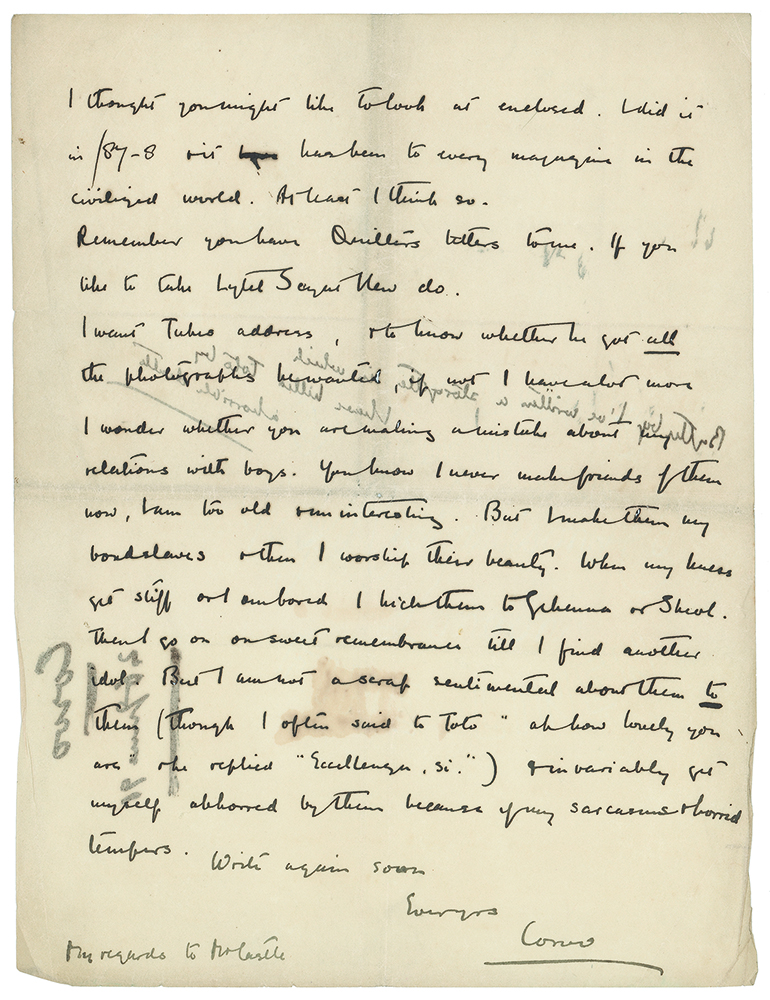 I thought you might like to look at enclosed. I did it
in /87-8 & it has been to every magazine in the
civilized world. At least I think so.
Remember you have Quilters letters to me. If you
like to take Lytel Saynt Hew do.
I want Tukes address, & to know whether he got all
the photographs he wanted, if not I have a lot more
I wonder whether you are making a mistake about my
relations with boys. You know I never make friends of them
now, I am too old & uninteresting. But I make them my
bondslaves & then I worship their beauty. When my knees
get stiff or I am bored I kick them to Gehenna or Sheol.
Then I go on on sweet remembrance till I find another
idol. But I am not a scrap sentimental about them to
them (though I often said to Toto "ah how lovely you
are" & he replied "Eccellenza, si.") & invariably get
myself abhorred by them because of my sarcasms & horrid
tempers. Write again soon
Ever yrs
Corvo
My regards to Mr Castle
By the by I've written a story
in which Toto
I have killed
a horrible